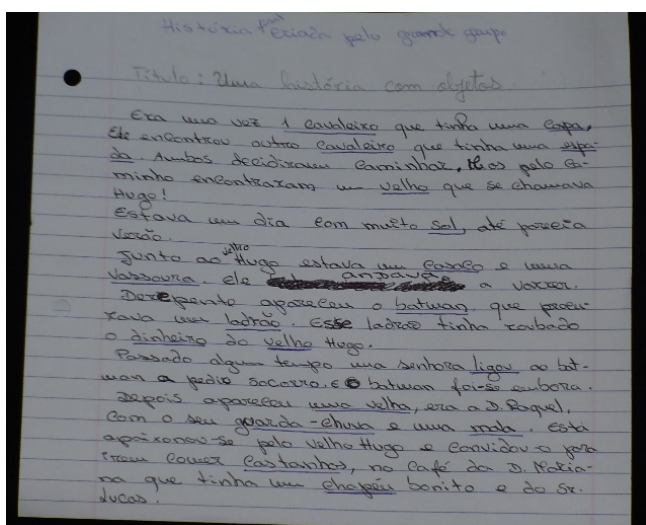 História criada pelo grande grupo
Título: Uma história com objetos
Era uma vez 1 cavaleiro que tinha uma capa.
Ele encontrou outro cavaleiro que tinha uma espa-
da. Ambos decidiram caminhar, e os pelo ca-
minho encontraram um velho que se chamava
Hugo!
Estava um dia com muito sol, até parecia
verão.
Junto ao velho Hugo estava um casaco e uma
vassoura. ele andava a varrer.
Derepente apareceu o batman que procu-
rava um ladrão. Esse ladrão tinha roubado
o dinheiro do velho Hugo.
Passado algum tempo uma senhora ligou ao bat-
man a pedir socorro. E o batman foi-se embora.
Depois apareceu uma velha, era a D. Raquel,
com o seu guarda-chuva e uma mala. Esta
apaixonou-se pelo velho Hugo e convidou-o para
irem comer castanhas, no café da D. Maria-
na que tinha um chapéu bonito e do Sr.
Lucas.